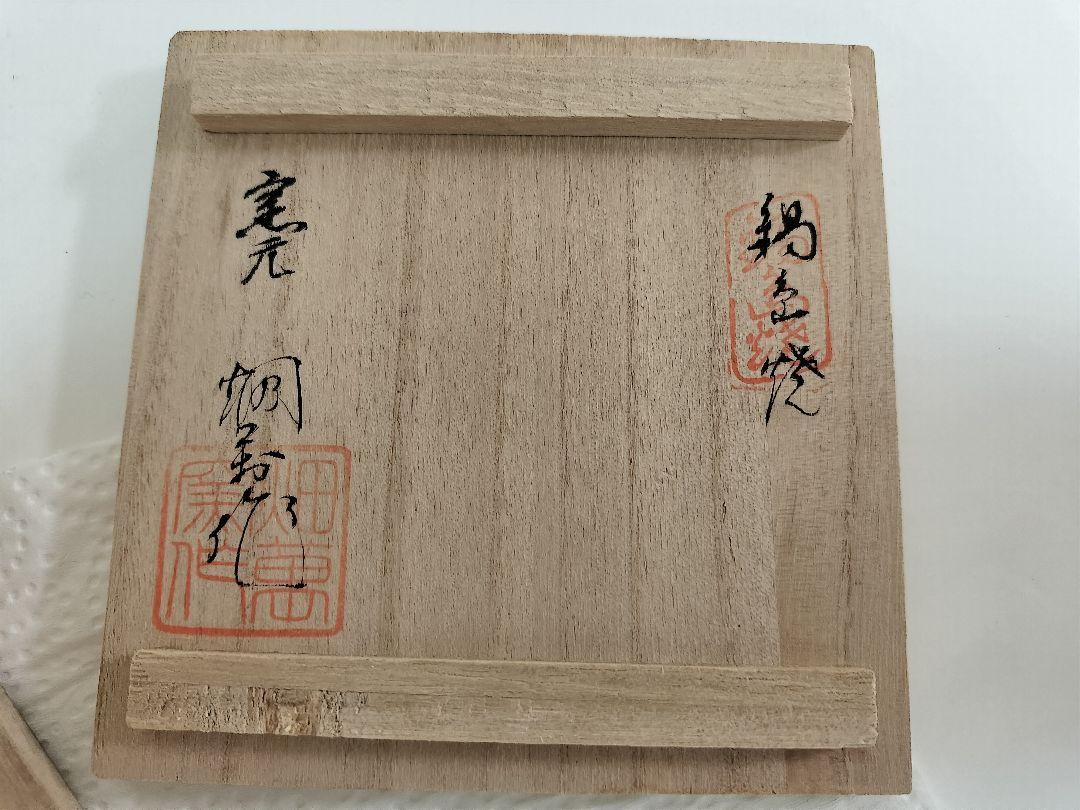 鍋島焼
鍋島焼
窯元 畑萬作
畑萬
陶作